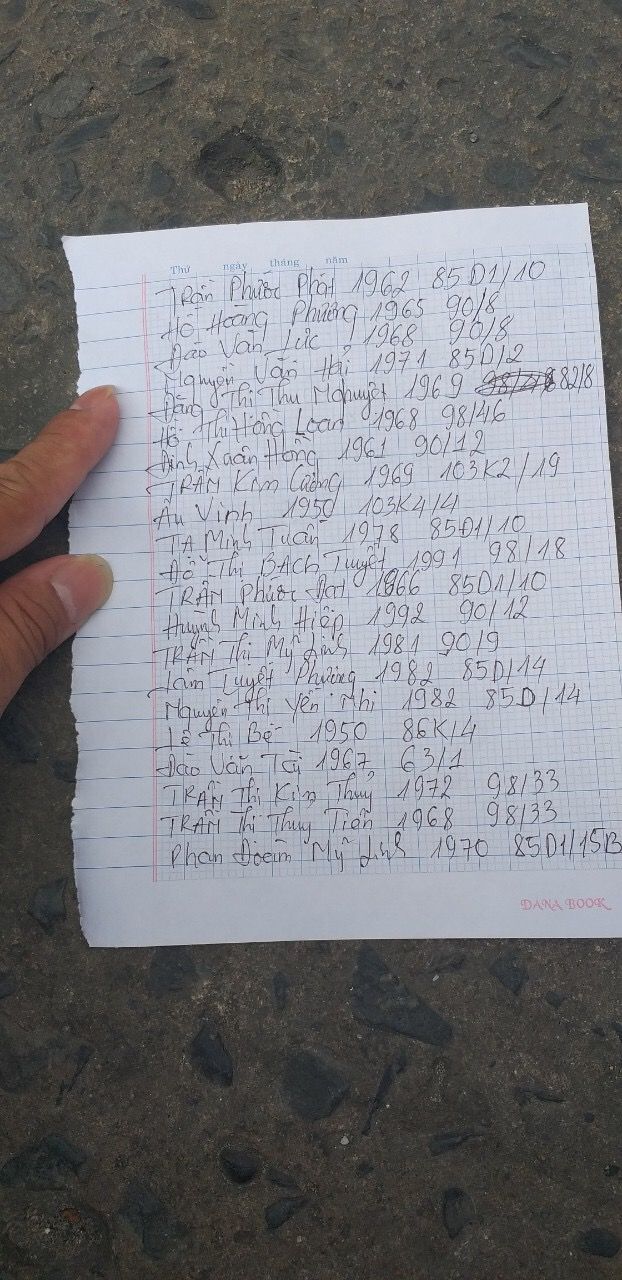 Thứ ngày tháng năm
Trần Phước Phát 1962 85D1/10
Hồ Hoàng Phương 1965 90/8
Đào Văn Lực 1968 90/8
Nguyễn Văn Hải 1971 85D/2
Đặng Thị Thu Nghuyệt 1969 82/8
Hồ Thị Hồng Loan 1968 98/46
Đinh Xuân Hồng 1961 90/12
TRẦN Kim Cường 1969 103K2/19
Âu Vinh 1950 103K4/4
TẠ Minh Tuấn 1978 85D1/10
Đỗ Thị BẠCH Tuyết 1991 98/18
TRẦN Phước Đạt 1966 85D1/10
Huỳnh Minh Hiệp 1992 90/12
TRẦN Thị Mỹ Linh 1981 90/9
Lâm Tuyết Phương 1982 85D/14
Nguyễn Thị Yến Nhi 1982 85D/14
Lê Thị Bé 1950 86K/4
Đào Văn Tài 1967 63/1
TRẦN Thị Kim Thuỷ 1972 98/33
TRẦN Thị Thuỷ Tiên 1968 98/33
Phan Mỹ Linh 1970 85D1/15B
DANA BOOK